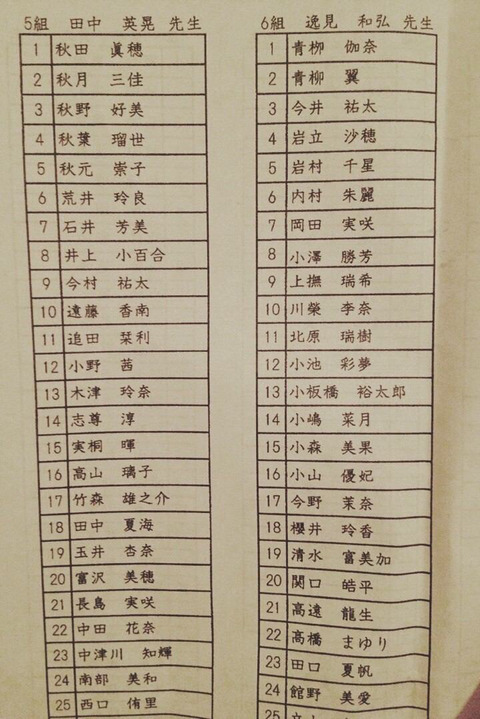 5組 田中 英晃 先生
1 秋田 眞穂
2 秋月 三佳
3 秋野 好美
4 秋葉 瑠世
5 秋元 崇子
6 荒井 玲良
7 石井 芳美
8 井上 小百合
9 今村 祐太
10 遠藤 香南
11 追田 栞利
12 小野 茜
13 木津 玲奈
14 志尊 淳
15 実桐 暉
16 高山 璃子
17 竹森 雄之介
18 田中 夏海
19 玉井 杏奈
20 富沢 美穂
21 長島 実咲
22 中田 花奈
23 中津川 知輝
24 南部 美和
25 西口 侑里
6組 逸見 和弘 先生
1 青栁 伽奈
2 青柳 翼
3 今井 祐太
4 岩立 沙穂
5 岩村 千星
6 内村 朱麗
7 岡田 実咲
8 小澤 勝芳
9 上撫 瑞希
10 川榮 李奈
11 北原 瑞樹
12 小池 彩夢
13 小板橋 裕太郎
14 小嶋 菜月
15 小森 美果
16 小山 優妃
17 今野 茉奈
18 櫻井 玲香
19 清水 富美加
20 関口 皓平
21 高遠 龍生
22 高橋 まゆり
23 田口 夏帆
24 館野 美愛
25